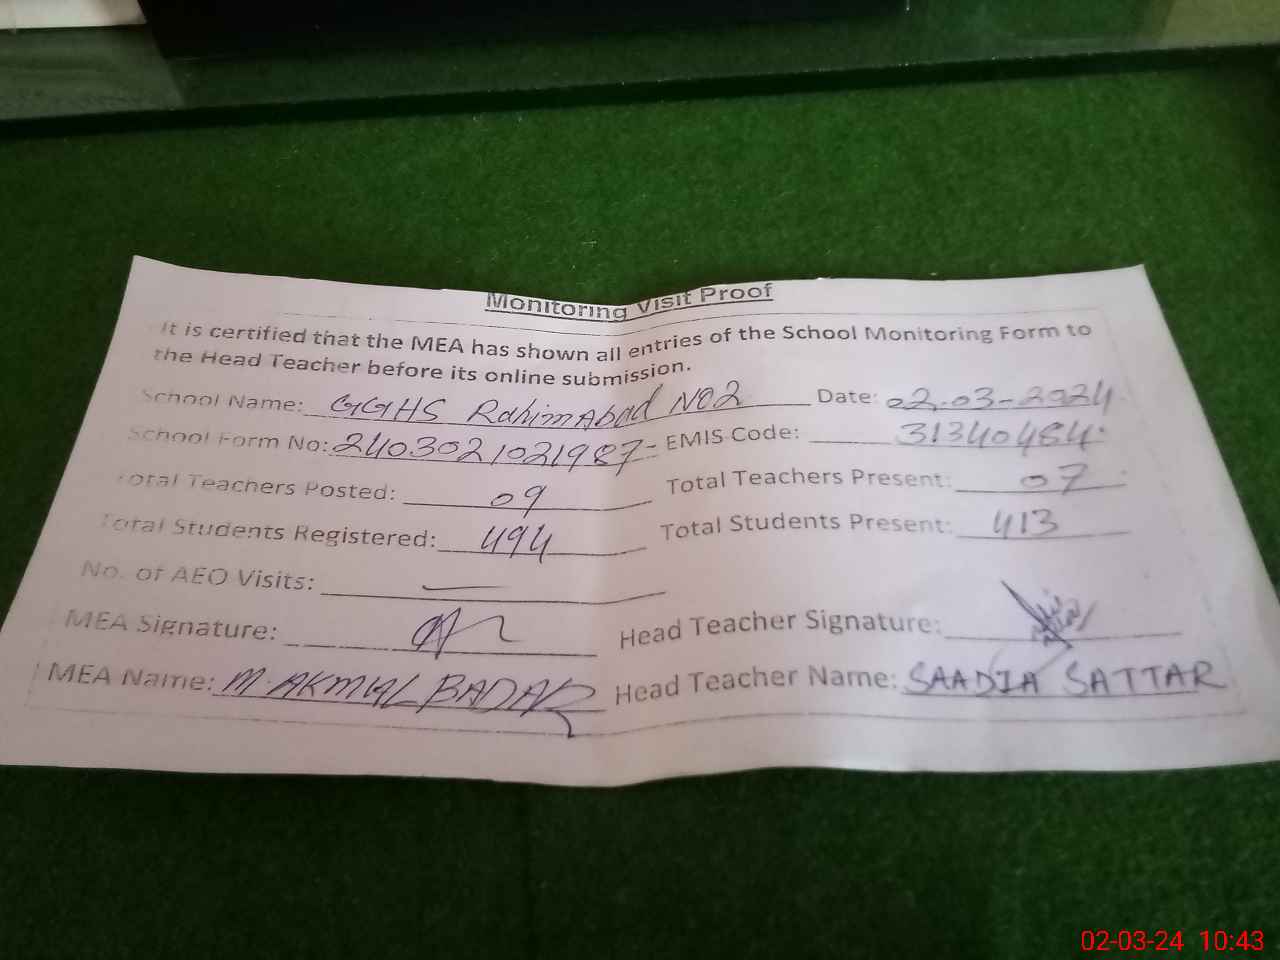 Monitoring Visit Proof
It is certified that the MEA has shown all entries of the School Monitoring Form to
the Head Teacher before its online submission.
School Name: GGHS RahimAbad NO2 Date: 02-03-2024
School Form No: 2403021021987- EMIS Code: 31340484
Total Teachers Posted: 09 Total Teachers Present: 07
Total Students Registered: 494 Total Students Present: 413
No. of AEO Visits: —
MEA Signature: Head Teacher Signature:
MEA Name: M. AKMAL BADAR Head Teacher Name: SAADIA SATTAR
02-03-24 10:43